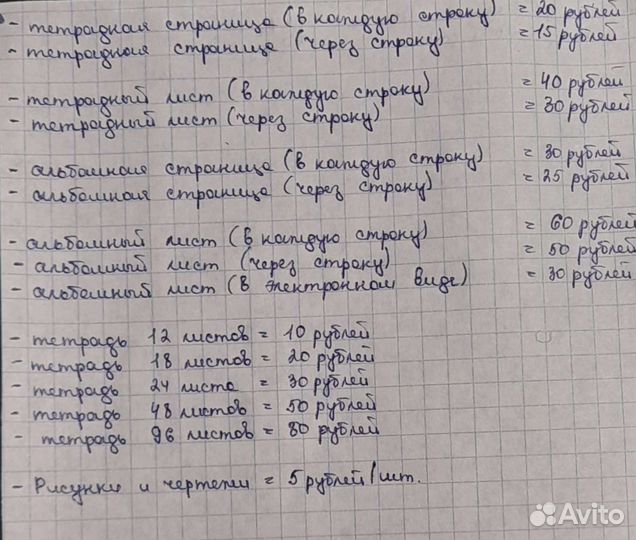 - тетрадная страница (в каждую строку) = 20 рублей
- тетрадная страница (через строку) = 15 рублей
- тетрадный лист (в каждую строку) = 40 рублей
- тетрадный лист (через строку) = 30 рублей
- альбомная страница (в каждую строку) = 30 рублей
- альбомная страница (через строку) = 25 рублей
- альбомный лист (в каждую строку) = 60 рублей
- альбомный лист (через строку) = 50 рублей
- альбомный лист (в электронном виде) = 30 рублей
- тетрадь 12 листов = 10 рублей
- тетрадь 18 листов = 20 рублей
- тетрадь 24 листа = 30 рублей
- тетрадь 48 листов = 50 рублей
- тетрадь 96 листов = 80 рублей
- Рисунки и чертежи = 5 рублей/шт.
Avito